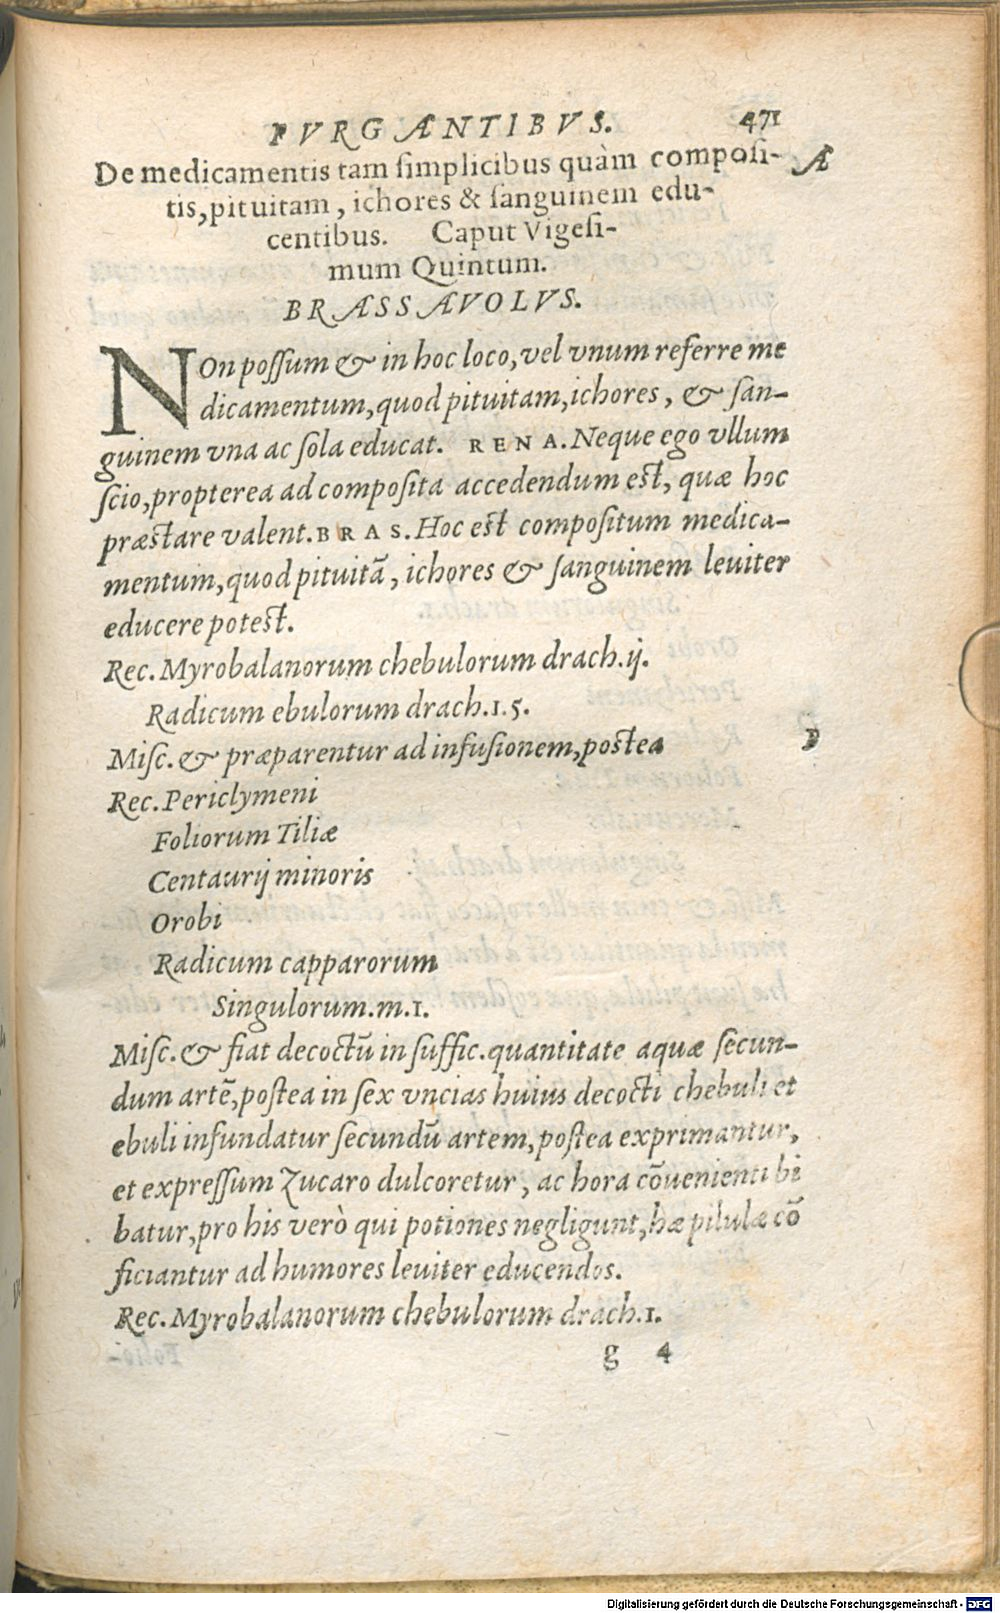 PVRGANTIBVS. 471
De medicamentis tam simplicibus quàm composi- A
tis, pituitam, ichores & sanguinem edu-
centibus. Caput Vigesi-
mum Quintum.
BRASSAVOLVS.
NOn possum & in hoc loco, vel vnum referre me
dicamentum, quod pituitam, ichores, & san-
guinem vna ac sola educat. RENA. Neque ego vllum
scio, propterea ad composita accedendum est, quæ hoc
præstare valent. BRAS. Hoc est compositum medica-
mentum, quod pituitā, ichores & sanguinem leuiter
educere potest.
Rec. Myrobalanorum chebulorum drach. ij.
Radicum ebulorum drach. 1. 5.
Misc. & præparentur ad infusionem, postea
Rec. Periclymeni
Foliorum Tiliæ
Centaurij minoris
Orobi
Radicum capparorum
Singulorum. m. 1.
Misc. & fiat decoctū in suffic. quantitate aquæ secun-
dum artē, postea in sex vncias huius decocti chebuli et
ebuli infundatur secundū artem, postea exprimantur,
et expressum Zucaro dulcoretur, ac hora cōuenienti bi
batur, pro his verò qui potiones negligunt, hæ pilulæ cō
ficiantur ad humores leuiter educendos.
Rec. Myrobalanorum chebulorum drach. 1.
g 4
Digitalisierung gefördert durch die Deutsche Forschungsgemeinschaft - DFG